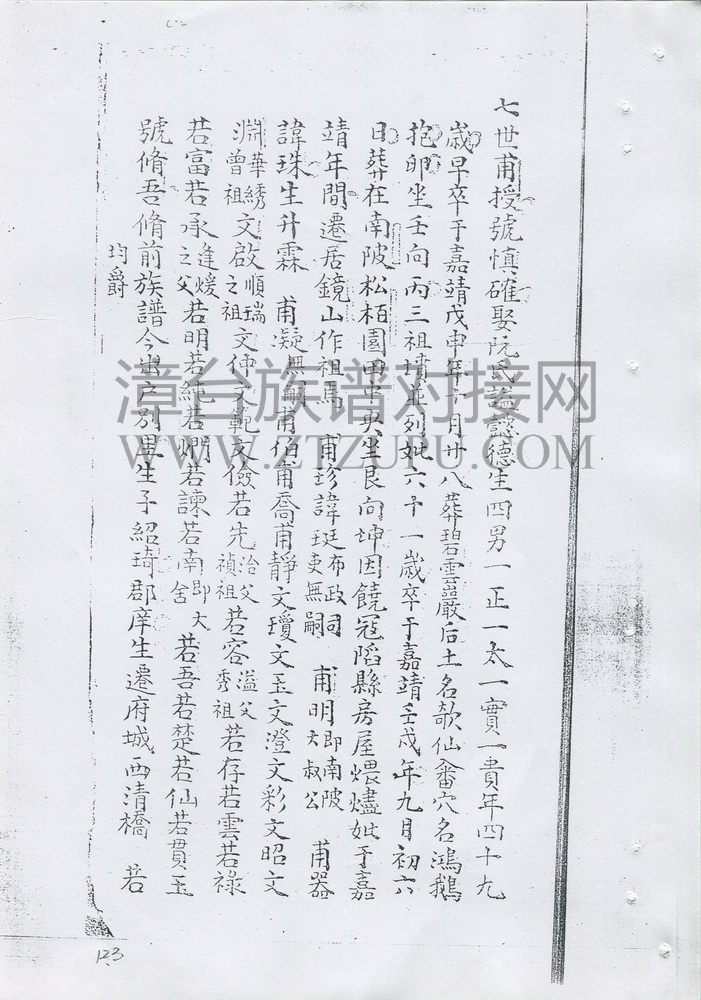 七世甫授號慎確娶阮氏謚懿德生四男一正一太一實一貴年四十九
歲早卒于嘉靖戊申年六月廿八葬碧雲巖后土名欹仙畬穴名鴻鵝
抱卵坐壬向丙三祖墳並列妣六十一歲卒于嘉靖壬戌年九月初六
日葬在南陂松柏園田中央坐艮向坤因饒冦陷縣房屋煨燼妣于嘉
靖年間遷居鏡山作祖焉 甫珍諱珽布政司吏無嗣 甫明即南陂大叔公 甫器
諱珠生升霖 甫凝無嗣甫伯甫喬甫靜文瓊文玉文澄文彩文昭文
淵華綉曾祖文啟順瑞之祖文仲文範文儉若先治父禎祖若容溢父秀祖若存若雲若祿
若富若承逢煖之父若明若純若炯若諫若南即大舍 若吾若楚若仙若貫玉
號脩吾脩前族譜今出戶別學生子紹琦郡庠生遷府城西清橋 若
均爵
漳台族谱对接网
WWW.ZTZUPU.COM
123